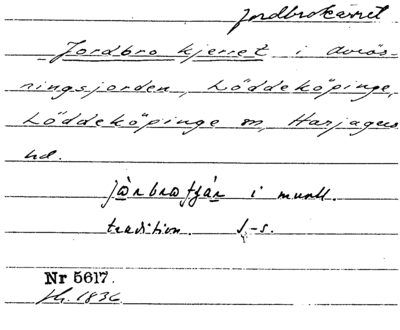 Jordbrokärret
Jordbro kjerret i avrös-
ningsjorden, Löddeköpinge,
Löddeköpinge sn, Harjagers
hd.
i muntl.
tradition.
Nr 5617.
1836